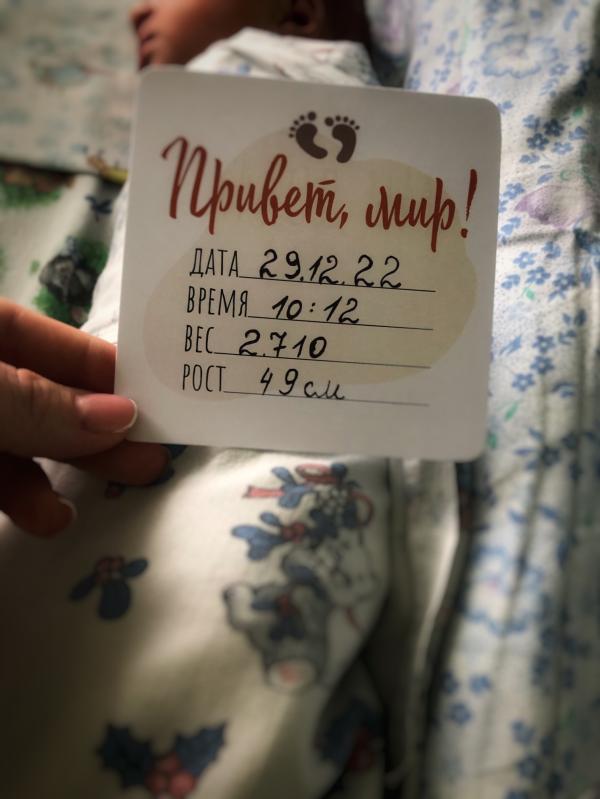 Привет, мир!
ДАТА 29.12.22
ВРЕМЯ 10:12
ВЕС 2.710
РОСТ 49 см